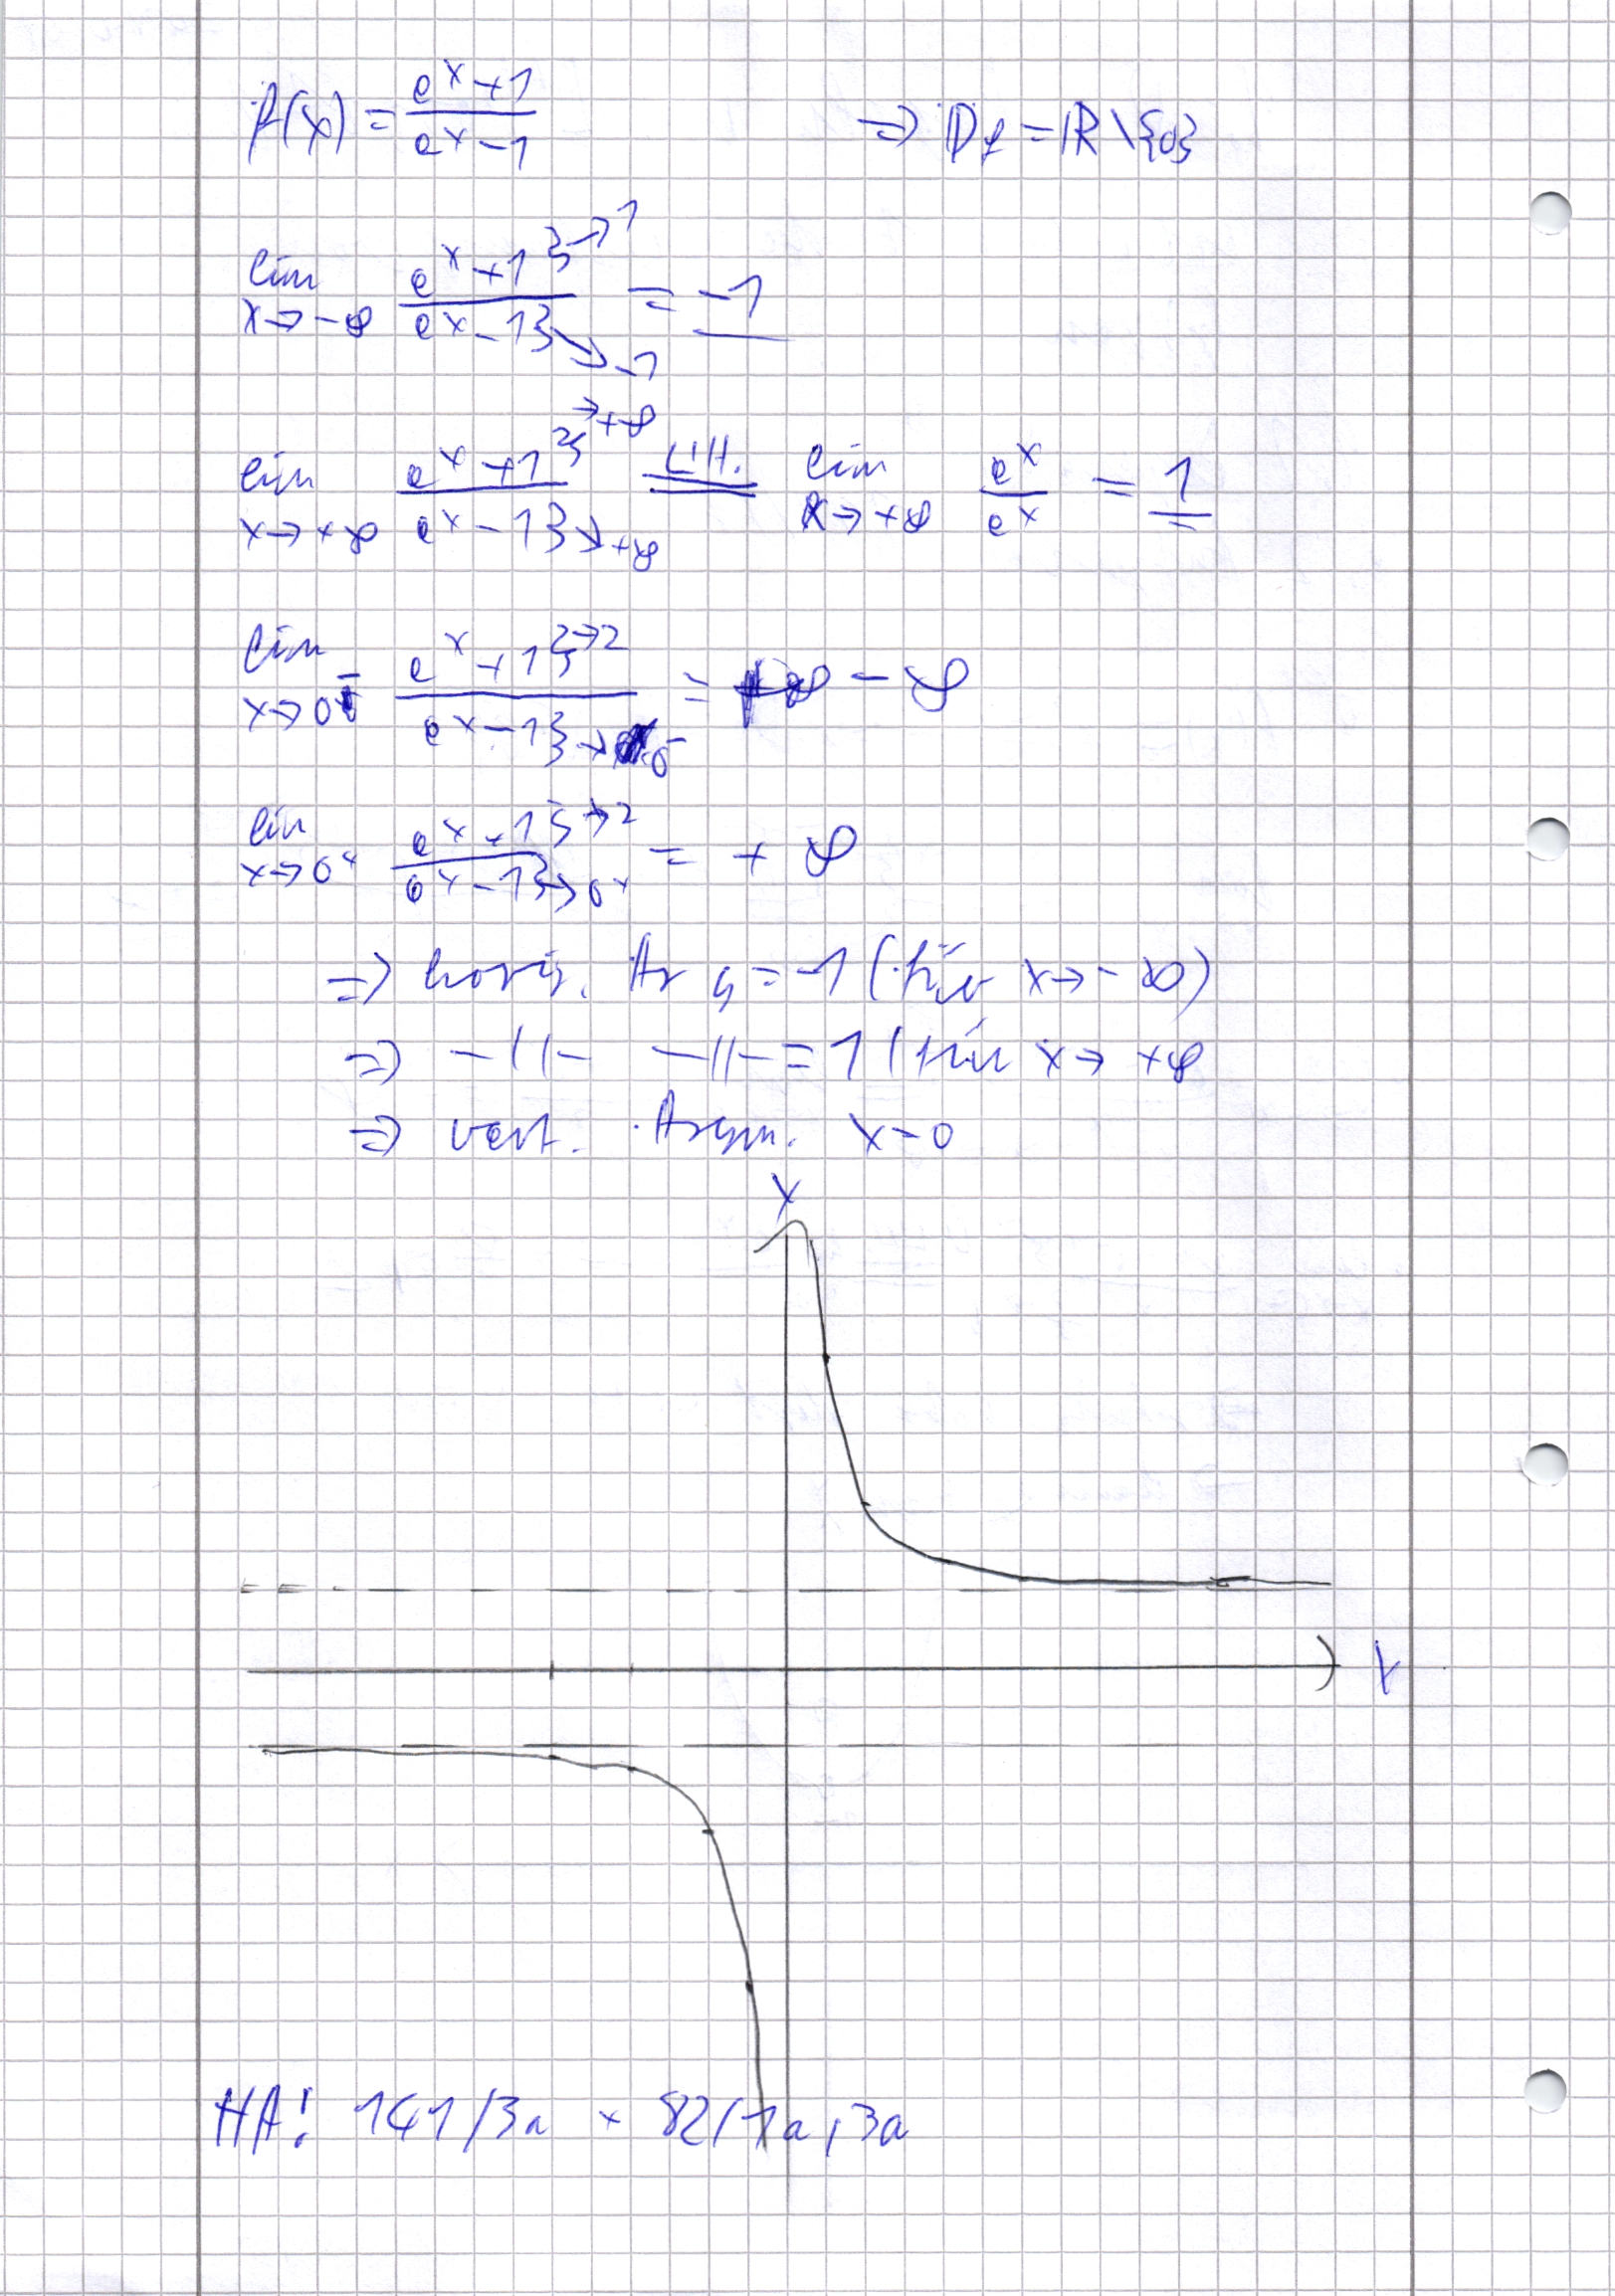 f(x) = (e^x + 1)/(e^x - 1) ⇒ D_f = ℝ \ {0}
lim x→-∞ (e^x + 1 }→1)/(e^x - 1 }→-1) = -1
lim x→+∞ (e^x + 1 }→+∞)/(e^x - 1 }→+∞) =L'H.= lim x→+∞ e^x/e^x = 1
lim x→0⁻ (e^x + 1 }→2)/(e^x - 1 }→0⁻) = -∞
lim x→0⁺ (e^x + 1 }→2)/(e^x - 1 }→0⁺) = + ∞
⇒ horiz. As y = -1 (für x→ -∞)
⇒ -||- -||- = 1 (für x→ +∞
⇒ vert. Asym. x=0
y
x
HA: 141/3a + 82/1a, 3a